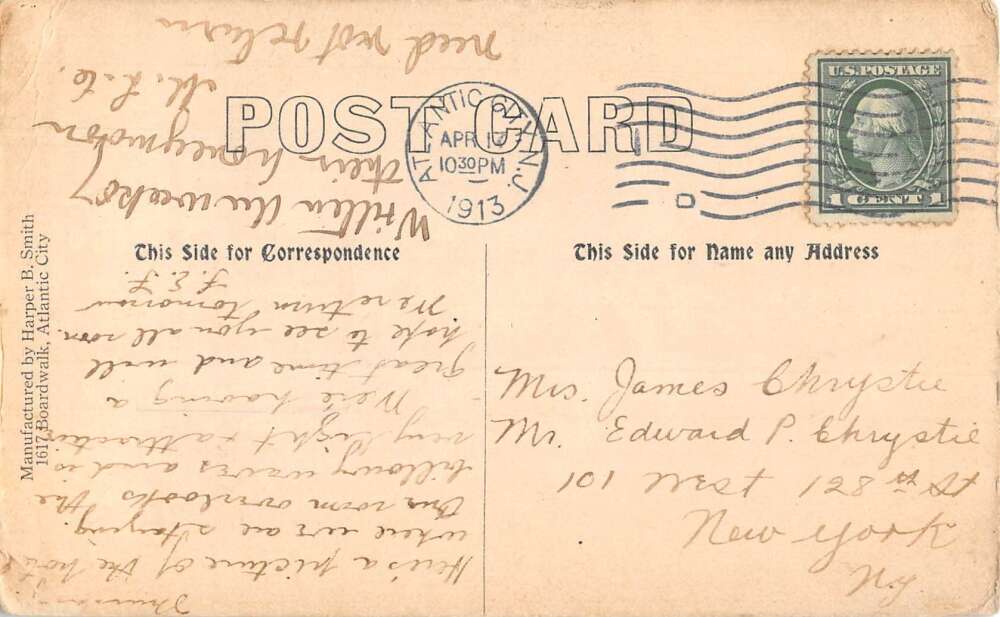 POST CARD
ATLANTIC CITY, N.J.
APR 17
10 30 PM
1913
U.S. POSTAGE
1 CENT 1
This Side for Correspondence
This Side for Name any Address
Manufactured by Harper B. Smith
1617 Boardwalk, Atlantic City
Mrs. James Chrystie
Mr. Edward P. Chrystie
101 West 128th St
New York
N.Y.
Here's a picture of the hotel
where we are staying.
Our room overlooks the
billowy waves and is
very light & attractive
- We're having a
great time and will
hope to see you all soon.
We return tomorrow
Written
their honeymoon
need not return